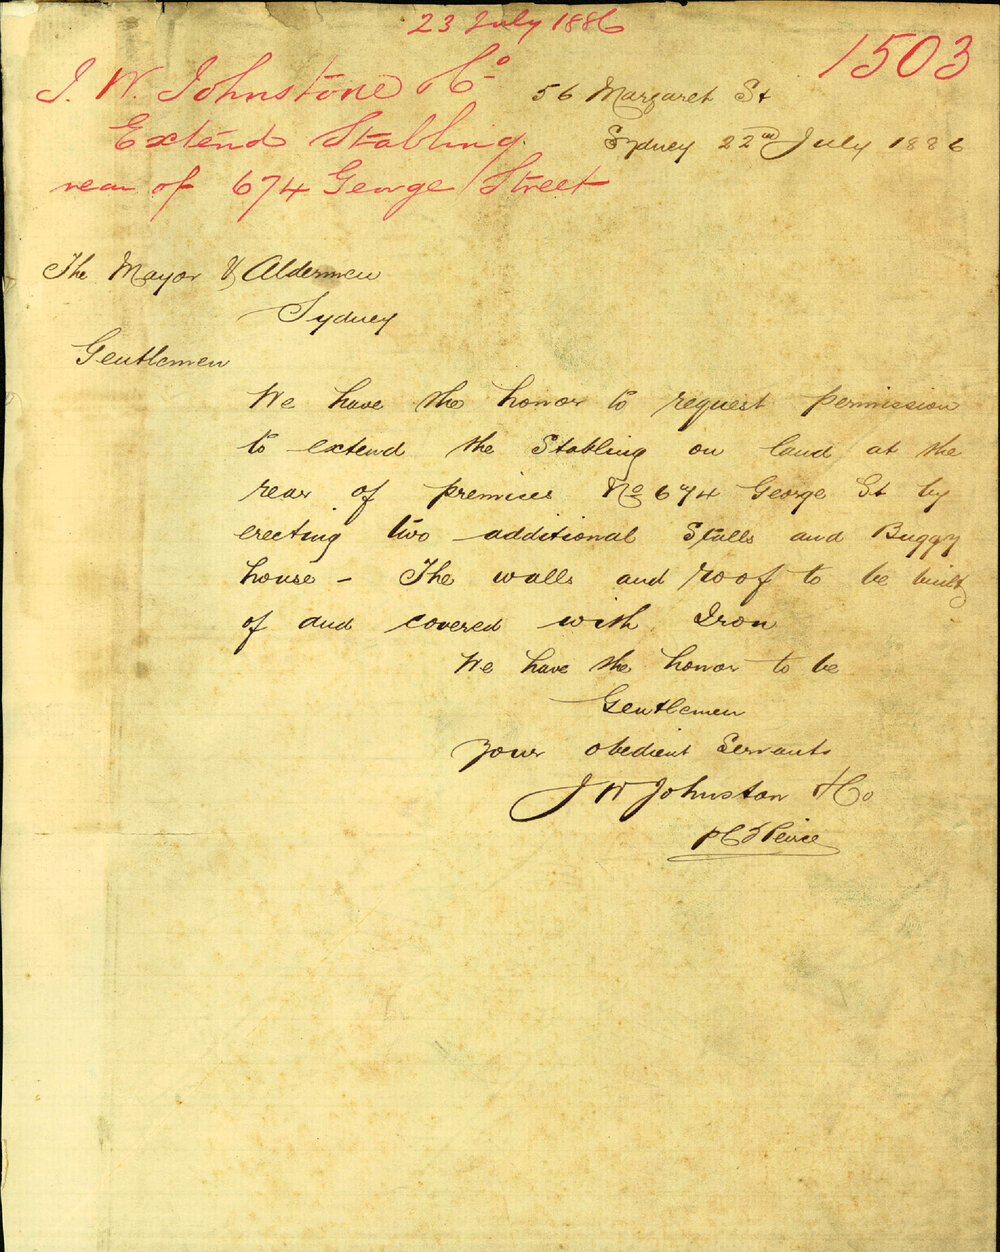 23 July 1886
1503
J. W. Johnstone & Co
Extend Stabling
rear of 674 George Street
56 Margaret St
Sydney 22nd July 1886
The Mayor & Aldermen
Sydney
Gentlemen
We have the honor to request permission
to extend the Stabling on land at the
rear of premises No 674 George St by
erecting two additional Stalls and Buggy
house - The walls and roof to be built
of and covered with Iron
We have the honor to be
Gentlemen
Your obedient Servants
J W Johnston & Co
Peirce